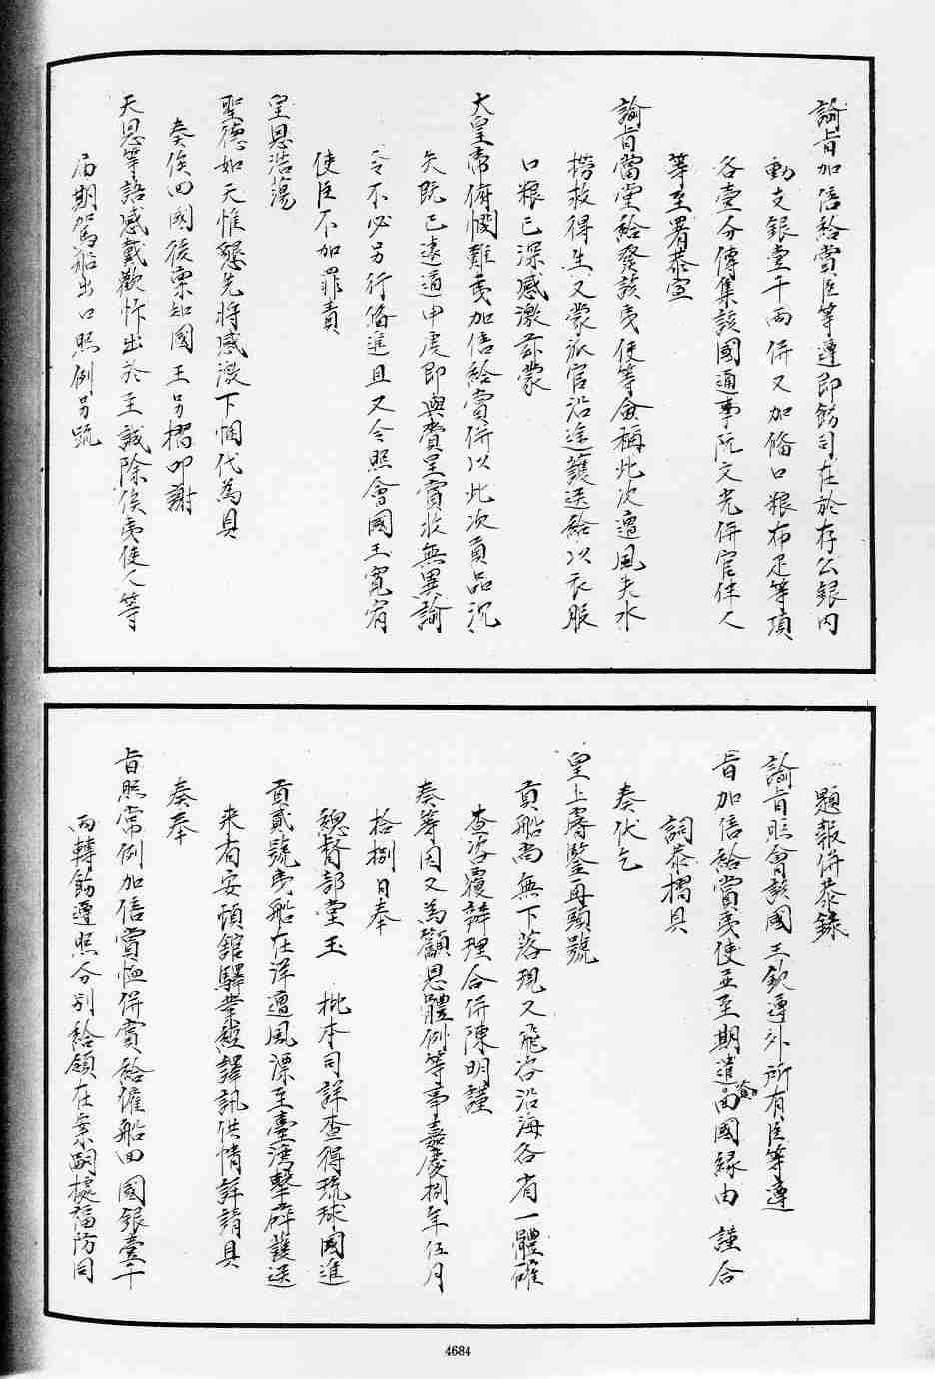 諭旨加倍給賞臣等遵即飭司在於存公銀內
動支銀壹千兩併又加備口粮布疋等項
各壹分傳集該國通事阮文光併官伴人
等至署恭宣
諭旨當堂給發該夷使等僉稱此次遭風失水
撈救得生又蒙派官沿途護送給以衣服
口粮已深感激茲蒙
大皇帝俯憫難夷加倍給賞併以此次貢品沉
失既已遠通申虔即與賫呈賞收無異諭
令不必另行備進且又令照會國王寬宥
使臣不加罪責
皇恩浩蕩
聖德如天惟懇先將感激下悃代為具
奏俟回國後稟知國王另摺叩謝
天恩等語感戴歡忭出於至誠除俟夷使人等
屆期駕船出口照例另疏
題報併恭錄
諭旨照會該國王欽遵外所有臣等遵
旨加倍給賞夷使並至期遣回國緣由謹合
詞恭摺具
奏代乞
皇上睿鑒再頭號
貢船尚無下落現又飛咨沿海各省一體確
查咨覆辦理合併陳明謹
奏等因又為籲恩體例等事嘉慶捌年伍月
拾捌日奉
總督部堂玉 批本司詳查得琉球國進
貢貳號夷船在洋遭風漂至臺灣擊碎護送
來省安頓館驛業經譯訊供情詳請具
奏奉
旨照常例加倍賞恤併賞給僱船回國銀壹千
兩轉飭遵照分別給領在案嗣據福防同
4684